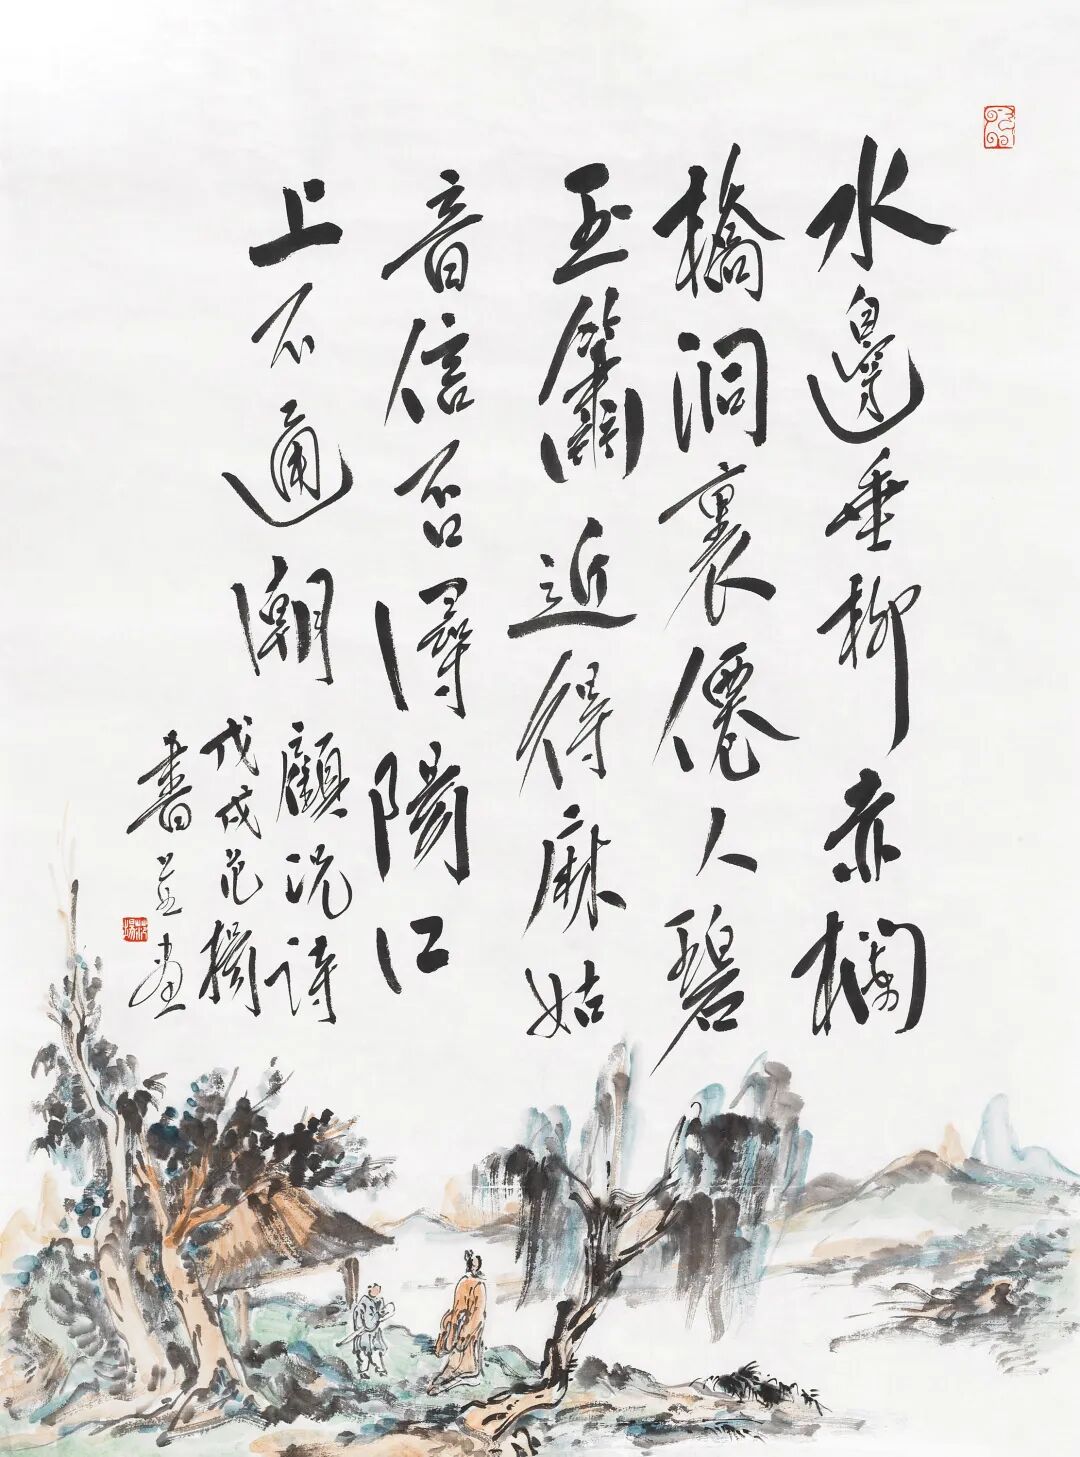 水邊垂柳赤欄
橋洞裏僊人碧
玉簫近得麻姑
音信否潯陽江
上不通潮
顧況詩
戊戌范揚
書並畫
范揚